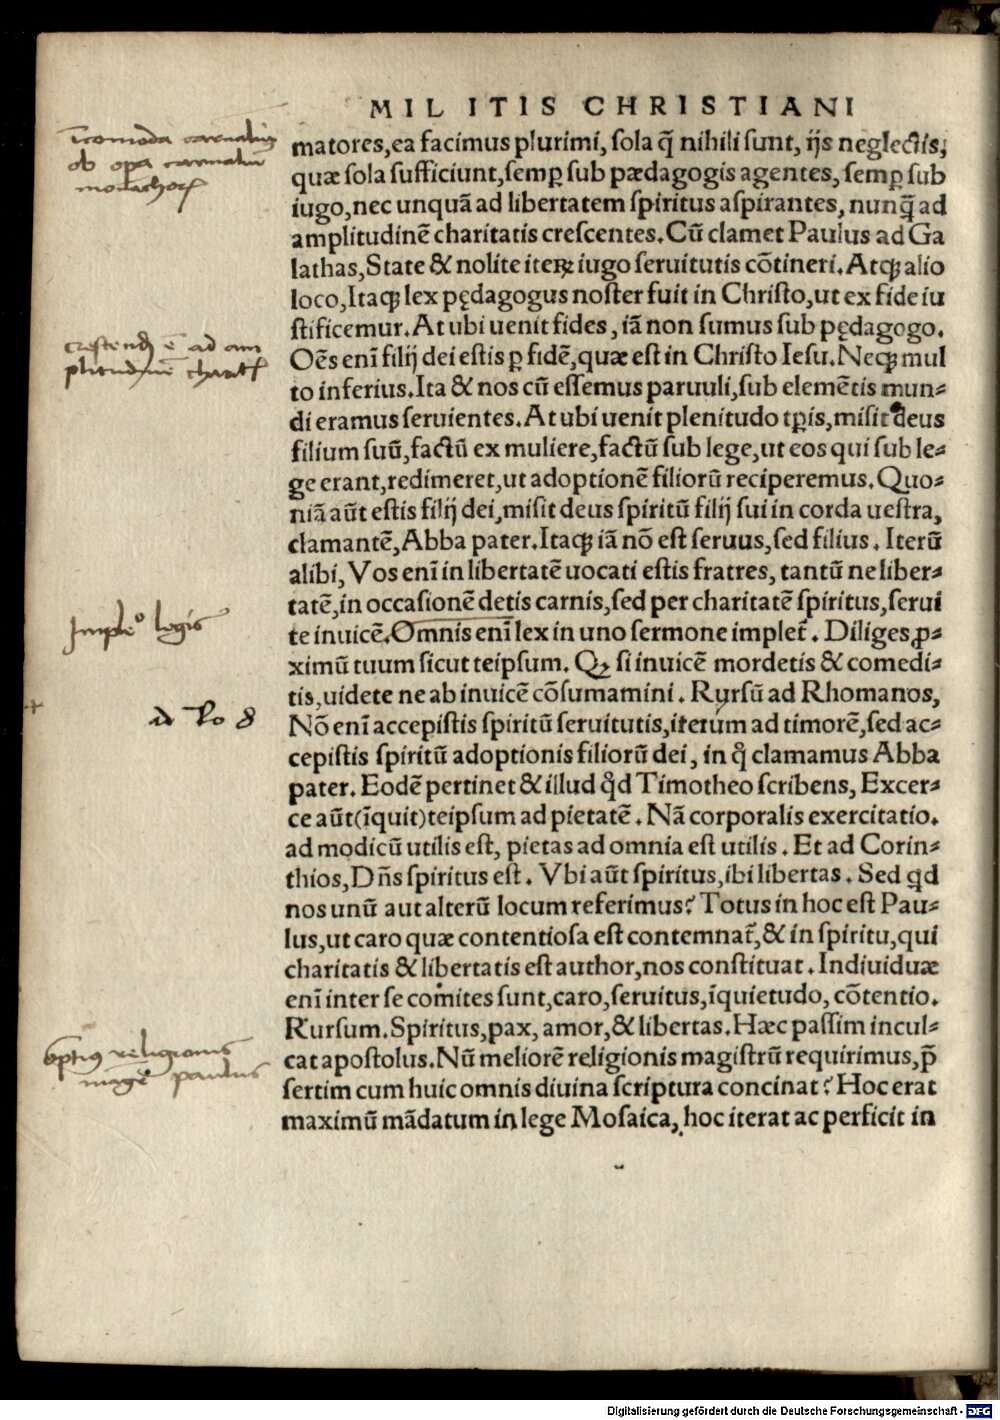 MILITIS CHRISTIANI
matores,ea facimus plurimi, ſola q̃ nihili ſunt, ijs neglectis;
quæ ſola ſufficiunt,ſemꝑ ſub pædagogis agentes, ſemꝑ ſub
iugo,nec unquã ad libertatem ſpiritus aſpirantes, nunq̃ ad
amplitudinẽ charitatis creſcentes.Cũ clamet Paulus ad Ga
lathas,State & nolite iteꝝ iugo ſeruitutis cõtineri.Atqꝫ alio
loco,Itaqꝫ lex pędagogus noſter fuit in Chriſto,ut ex fide iu
ſtificemur.At ubi uenit fides, iã non ſumus ſub pędagogo.
Oẽs enĩ filij dei eſtis ꝑ fidẽ,quæ eſt in Chriſto Ieſu.Neqꝫ mul
to inferius.Ita & nos cũ eſſemus paruuli,ſub elemẽtis mun⸗
di eramus ſeruientes.At ubi uenit plenitudo tꝑis,miſit deus
filium ſuũ,factũ ex muliere,factũ ſub lege,ut eos qui ſub le⸗
ge erant,redimeret,ut adoptionẽ filiorũ reciperemus.Quo⸗
niã aũt eſtis filij dei,miſit deus ſpiritũ filij ſui in corda ueſtra,
clamantẽ,Abba pater.Itaqꝫ iã nõ eſt ſeruus,ſed filius. Iterũ
alibi, Vos enĩ in libertatẽ uocati eſtis fratres, tantũ ne liber⸗
tatẽ,in occaſionẽ detis carnis,ſed per charitatẽ ſpiritus,ſerui
te inuicẽ.Omnis enĩ lex in uno ſermone implet᷑. Diliges ꝓ⸗
ximũ tuum ſicut teipſum. Qꝫ ſi inuicẽ mordetis & comedi⸗
tis,uidete ne ab inuicẽ cõſumamini. Rurſũ ad Rhomanos,
Nõ enĩ accepiſtis ſpiritũ ſeruitutis,iterum ad timorẽ,ſed ac⸗
cepiſtis ſpiritũ adoptionis filiorũ dei, in q̊ clamamus Abba
pater. Eodẽ pertinet & illud q̊d Timotheo ſcribens, Excer⸗
ce aũt(ĩquit)teipſum ad pietatẽ. Nã corporalis exercitatio.
ad modicũ utilis eſt, pietas ad omnia eſt utilis. Et ad Corin⸗
thios,Dñs ſpiritus eſt. Vbi aũt ſpiritus,ibi libertas. Sed qd
nos unũ aut alterũ locum referimus? Totus in hoc eſt Pau⸗
lus,ut caro quæ contentioſa eſt contemnat᷑,& in ſpiritu,qui
charitatis & libertatis eſt author,nos conſtituat. Indiuiduæ
enĩ inter ſe comites ſunt,caro,ſeruitus,ĩquietudo, cõtentio.
Rurſum.Spiritus,pax, amor,& libertas.Hæc paſſim incul⸗
cat apoſtolus.Nũ meliorẽ religionis magiſtrũ requirimus,p̃
ſertim cum huic omnis diuina ſcriptura concinat? Hoc erat
maximũ mãdatum in lege Moſaica, hoc iterat ac perficit in
ĩcomoda carnaliũ
ob opa carnaliũ
monachoꝝ
creſcendũ ẽ ad am
plitudinẽ charitꝭ
Impleº legis
ad Ro 8
optimꝰ religionis
mag̃r paulus
Digitalisierung gefördert durch die Deutsche Forschungsgemeinschaft - DFG